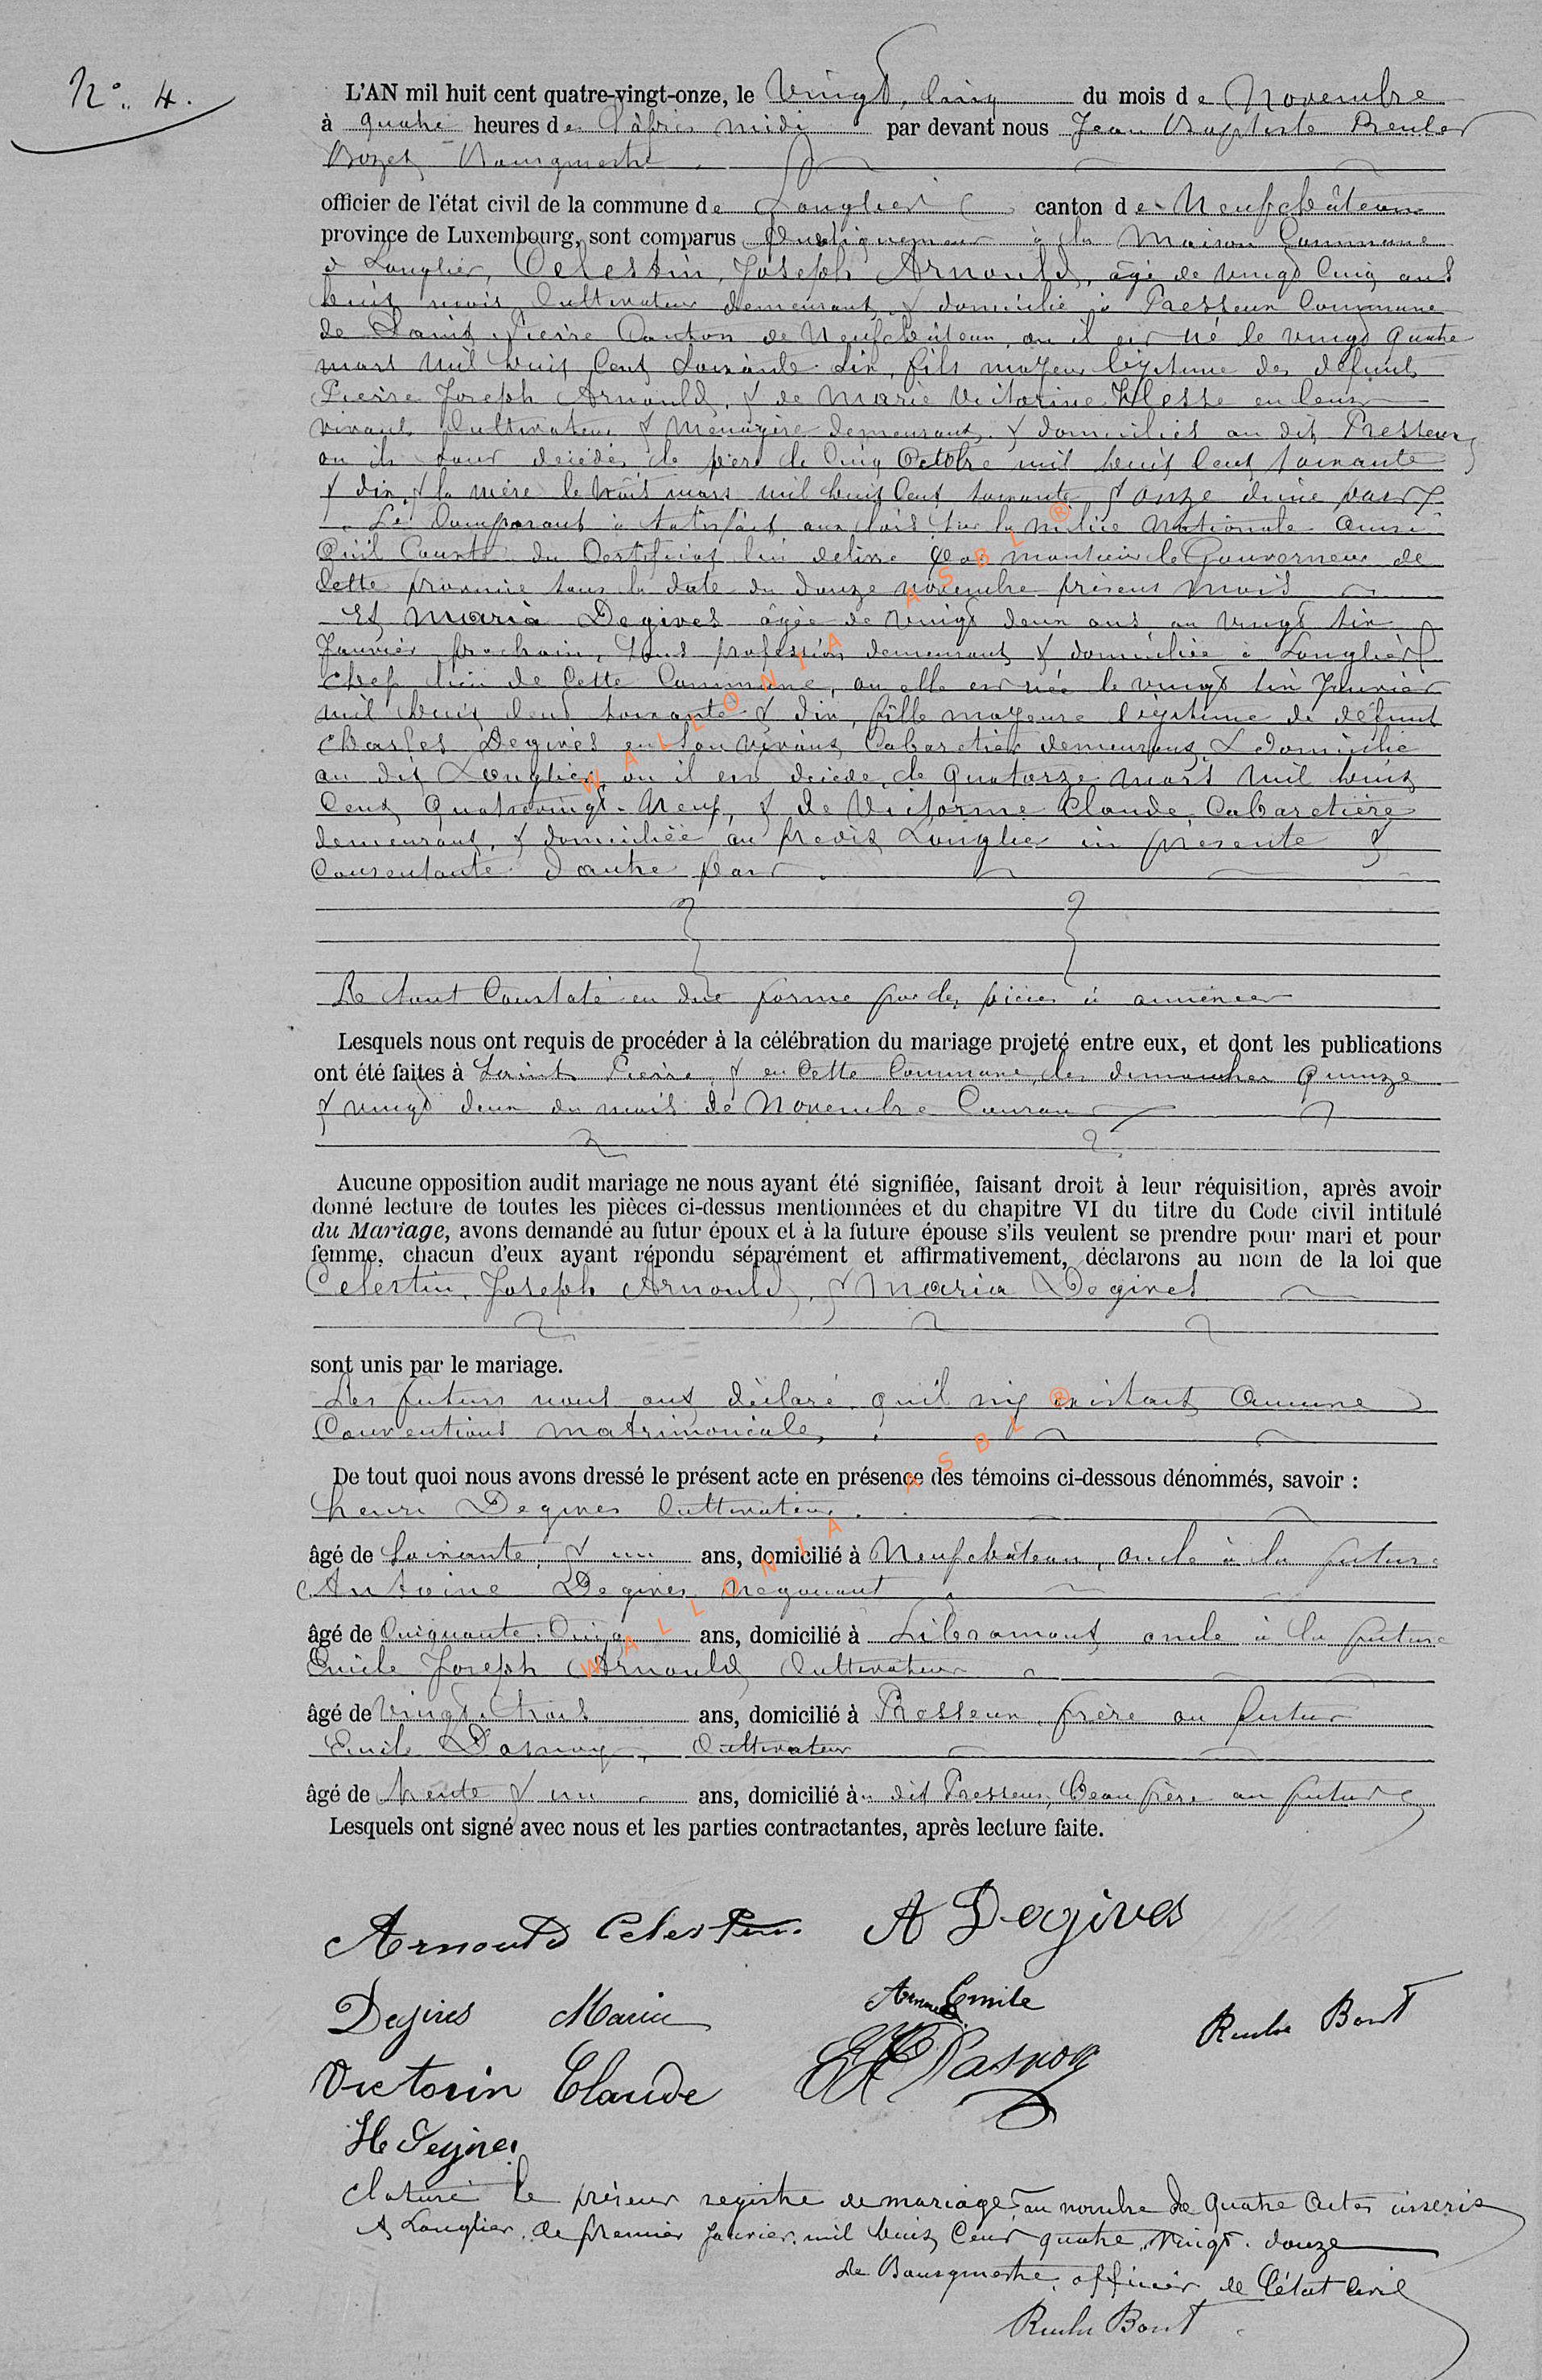 N° 4.
L'AN mil huit cent quatre-vingt-onze, le Vingt Cinq du mois de Novembre
à quatre heures de l'âprès midi par devant nous Jean Baptiste Reuler
Bourgmestre
officier de l'état civil de la commune de Longlier canton de Neufchâteau
province de Luxembourg, sont comparus Publiquement à la Maison Commune
d Longlier, Celestin, Joseph Arnould, âgé de vingt Cinq ans
huit mois Cultivateur demeurant & domicilié à Presseux Commune
de Saint Pierre Canton de Neufchâteau, ou il est né le vingt quatre
mars mil huit Cent Soixante Six, fils majeur légitime des défunts
Pierre Joseph Arnould, & de Marie Victorine Hesse en leur
vivant Cultivateur & Ménagère demeurant & domiciliés au dit Presseux
ou ils sont décédés, le père le Cinq Octobre mil huit Cent soixante
& dix, & la mère le huit mars mil huit Cent soixante & onze d'une part
Le Comparant à satisfait aux lois sur la milice Nationale Ainsi
Qu'il Conste du Certificat lui délivré par monsieur le Gouverneur de
Cette province sous la date du douze novembre présent mois
Et Maria Degives âgée de Vingt deux ans au vingt six
Janvier prochain, sans profession demeurant & domiciliée à Longlier
Chef lieu de Cette Commune, ou elle est née le vingt six Janvier
mil huit Cent soixante & dix, fille majeure légitime de défunt
Charles Degives en son vivant Cabaretier demeurant & domicilié
au dit Longlier ou il est décédé, le Quatorze mars mil huit
Cent Quatrevingt-Neuf, & de Victorine Claude, Cabaretière
demeurant, & domiciliée au prédit Longlier ici présente &
Consentante d'autre part.
Le tout Constaté en due forme par les pièces à annexer
Lesquels nous ont requis de procéder à la célébration du mariage projeté entre eux, et dont les publications
ont été faites à Saint Pierre, & en Cette Commune, les dimanches Quinze
& vingt deux du mois de Novembre Courant
Aucune opposition audit mariage ne nous ayant été signifiée, faisant droit à leur réquisition, après avoir
donné lecture de toutes les pièces ci-dessus mentionnées et du chapitre VI du titre du Code civil intitulé
du Mariage, avons demandé au futur époux et à la future épouse s'ils veulent se prendre pour mari et pour
femme, chacun d'eux ayant répondu séparément et affirmativement, déclarons au nom de la loi que
Celestin, Joseph Arnould, & Maria Degives
sont unis par le mariage.
Les futurs nous ont déclaré qu'il n'y existant Aucune
Conventions matrimoniale,
De tout quoi nous avons dressé le présent acte en présence des témoins ci-dessous dénommés, savoir :
henri Degives Cultivateur.
âgé de Soixante, & un ans, domicilié à Neufchâteau, oncle à la future
Antoine Degives Negociant
âgé de Cinquante Cinq ans, domicilié à Libramont oncle à la future
Emile Joseph Arnould Cultivateur
âgé de Vingt-trois ans, domicilié à Presseux, frère au futur
Emile Dasnoy, Cultivateur
âgé de trente & un ans, domicilié àu dit Presseux, Beau frère au futur
Lesquels ont signé avec nous et les parties contractantes, après lecture faite.
Arnould Celestin. A Degives
Degives Maria Arnould Emile
Victorin Claude E Dasnoy
H Degives
Cloturé le présent registre de mariage, au nombre de quatre Actes inseris
A Longlier, le premier Janvier, mil huit Cent quatre, Vingt. douze
Le Bourgmestre, officier de l'état Civil
WALLONIA ASBL ®
WALLONIA ASBL ®